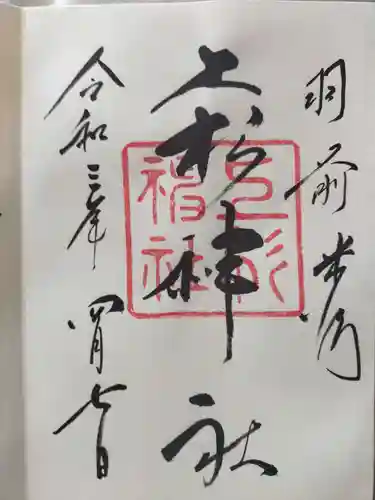 羽前米沢
上杉神社
上杉神社
令和三年四月七日